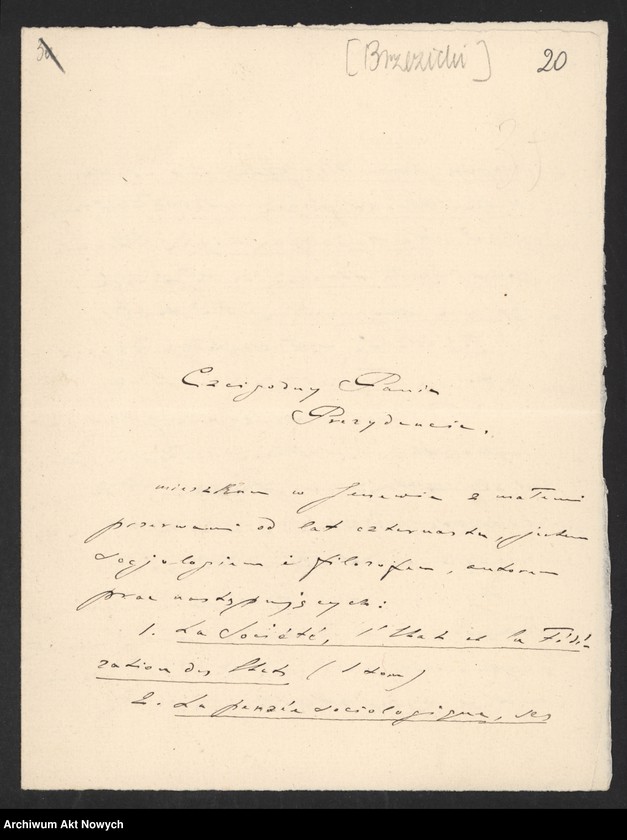 [Brzezicki] 20
Czcigodny Panie
Prezydencie.
mieszkam w Genewie z małemi
przerwami od lat czternastu, jestem
socjologiem i filozofem, autorem
prac następujących:
1. La Société, l'Etat et la Fédé-
ration des Etats (1 tom)
2. La pensée sociologique, ses
Archiwum Akt Nowych